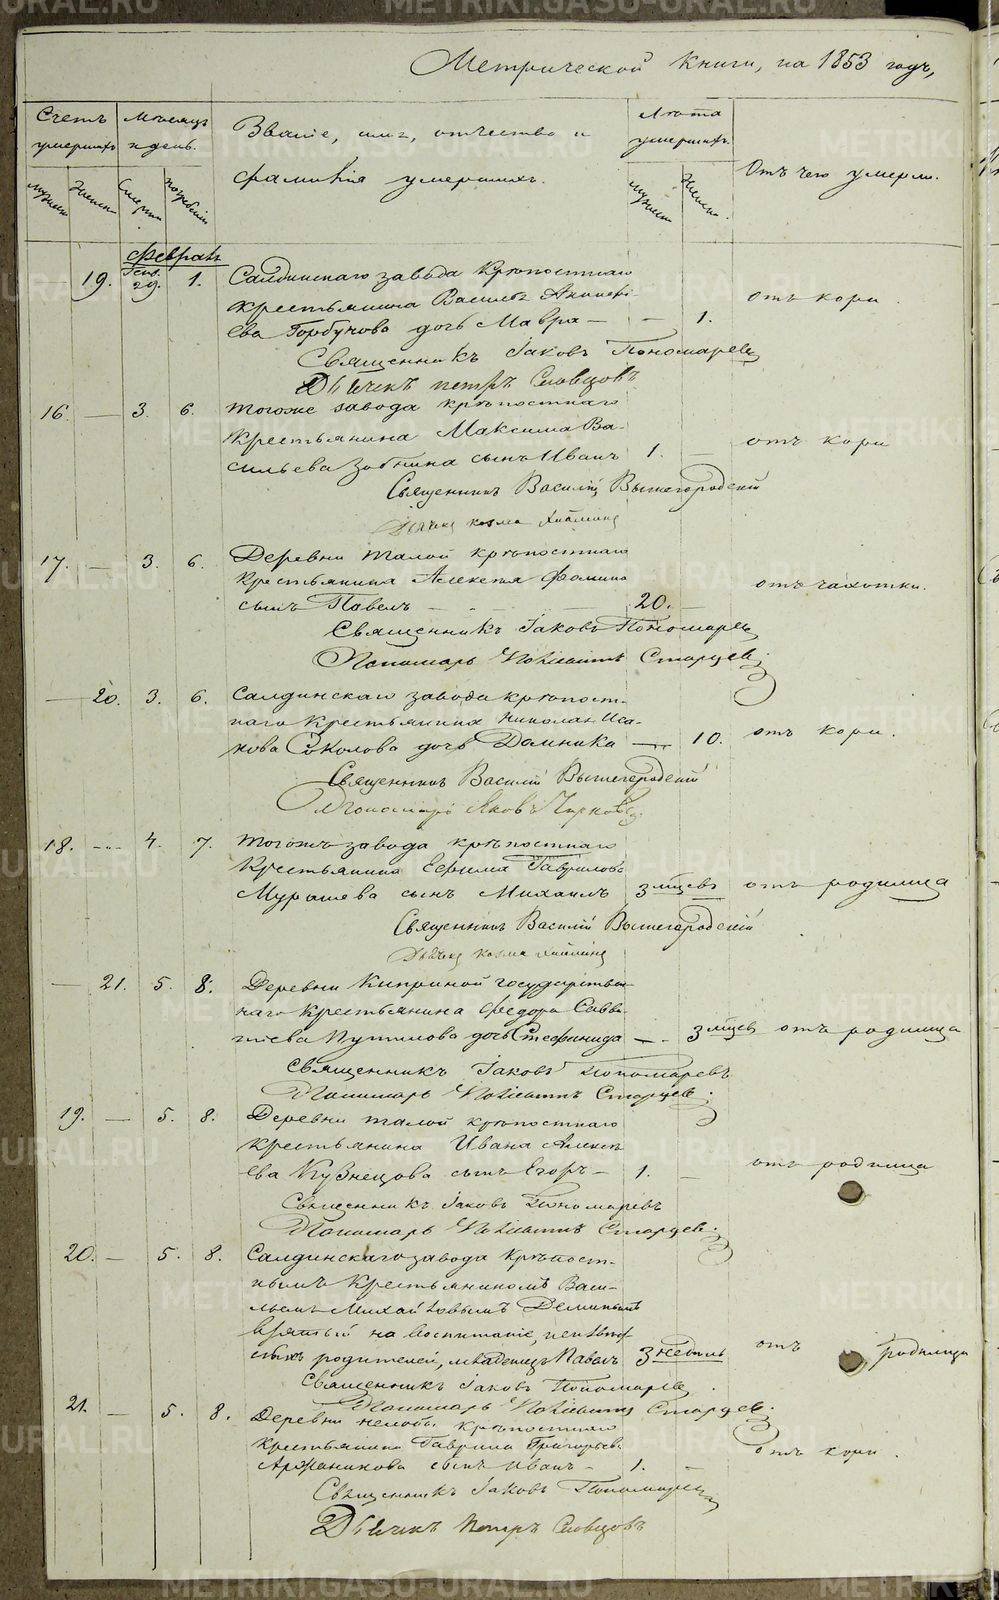 Метрической книги, на 1853 годъ,
Счетъ умершихъ
Мѣсяцъ и день.
Званіе, имя, отчество и фамилія умершихъ.
Лѣта умершихъ
Отъ чего умерли.
мужеск
Женск
Смерти
погребенія
мужеск
Женска.
Февраль
19. Генв. 29. 1. Салдинскаго завода крѣпостнаго
крестьянина Василья
ева Горбунова дочь Мавра — — 1. отъ кори.
Священникъ Іаковъ Пономаревъ
Дьячекъ петръ Словцовъ
16. — 3. 6. тогоже завода крѣпостнаго
крестьянина Максима Ва-
сильева Зобнина сынъ Иванъ 1. — отъ кори
Священникъ Василій Вышегородскій
Дьячекъ козма
17. — 3. 6. Деревни Талой крѣпостнаго
крестьянина Алексея Фомина
сынъ Павелъ — 20. — отъ чахотки.
Священникъ Іаковъ Пономаревъ
Пономарь Старцевъ
— 20. 3. 6. Салдинскаго завода крѣпост-
наго крестьянина Николая Иса-
кова Соколова дочь Домника — 10. отъ кори.
Священникъ Василій Вышегородскій
Пономарь Яковъ
18. — 4. 7. тогожъ завода крѣпостнаго
Крестьянина Ефима Гаврилова
Мурашева сынъ Михаилъ 3 мѣсцъ отъ родимца
Священникъ Василій Вышегородскій
Дьячекъ козма
— 21. 5. 8. Деревни Киприной государствен
наго крестьянина Федора Савва-
тѣева Путилова дочь Стефанида — 3 мѣсцъ отъ родимца
Священникъ Іаковъ Пономаревъ
Пономарь Старцевъ
19. — 5. 8. Деревни талой крѣпостнаго
крестьянина Ивана Алексѣ
ева Кузнецова сынъ Егоръ — 1. — отъ родимца
Священникъ Іаковъ Пономаревъ
Пономарь Старцевъ
20. — 5. 8. Салдинскаго завода Крѣпост-
нымъ Крестьяниномъ Васи-
льемъ Михайловымъ Деминымъ
взятый на воспитаніе, неизвѣст
ныхъ родителей, младенецъ Павелъ 3 недѣль отъ родимца
Священникъ Іаковъ Пономаревъ
Пономарь Старцевъ
21. — 5. 8. Деревни нелобы крѣпостнаго
крестьянина Гаврила Григорьева
Аржаникова сынъ Иванъ — 1. — отъ кори.
Священникъ Іаковъ Пономаревъ
Дьячекъ Петръ Словцовъ
METRIKI.GASU-URAL.RU